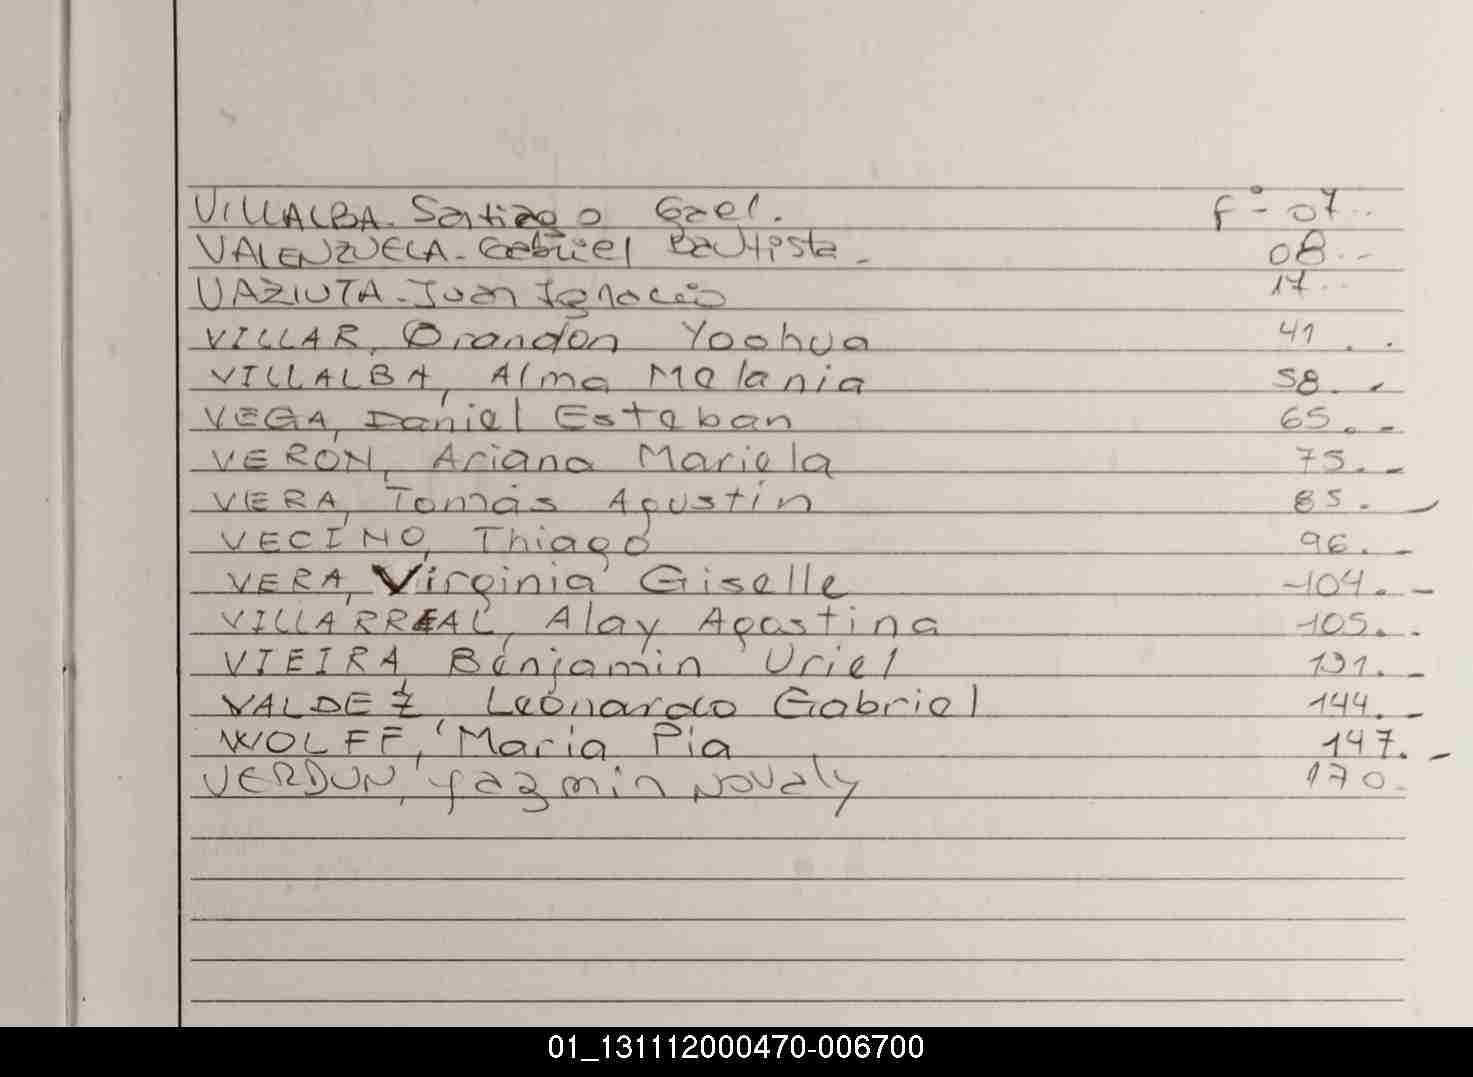 VILLALBA. Santiago Gael. Fº - 07..
VALENZUELA. Gabriel Bautista. 08..
VAZIUTA. Juan Ignacio 17..
VILLAR, Brandon Yoohua 41..
VILLALBA, Alma Melania 58..
VEGA, Daniel Esteban 65..
VERON, Ariana Mariela 75..
VERA, Tomás Agustín 85.
VECINO, Thiago 96..
VERA, Virginia Giselle 104..
VILLARREAL, Alay Agostina 105..
VIEIRA Benjamin Uriel 131..
VALDEZ, Leonardo Gabriel 144..
WOLFF, Maria Pia 147..
VERDUN, Yazmin Novaly 170.
01_131112000470-006700